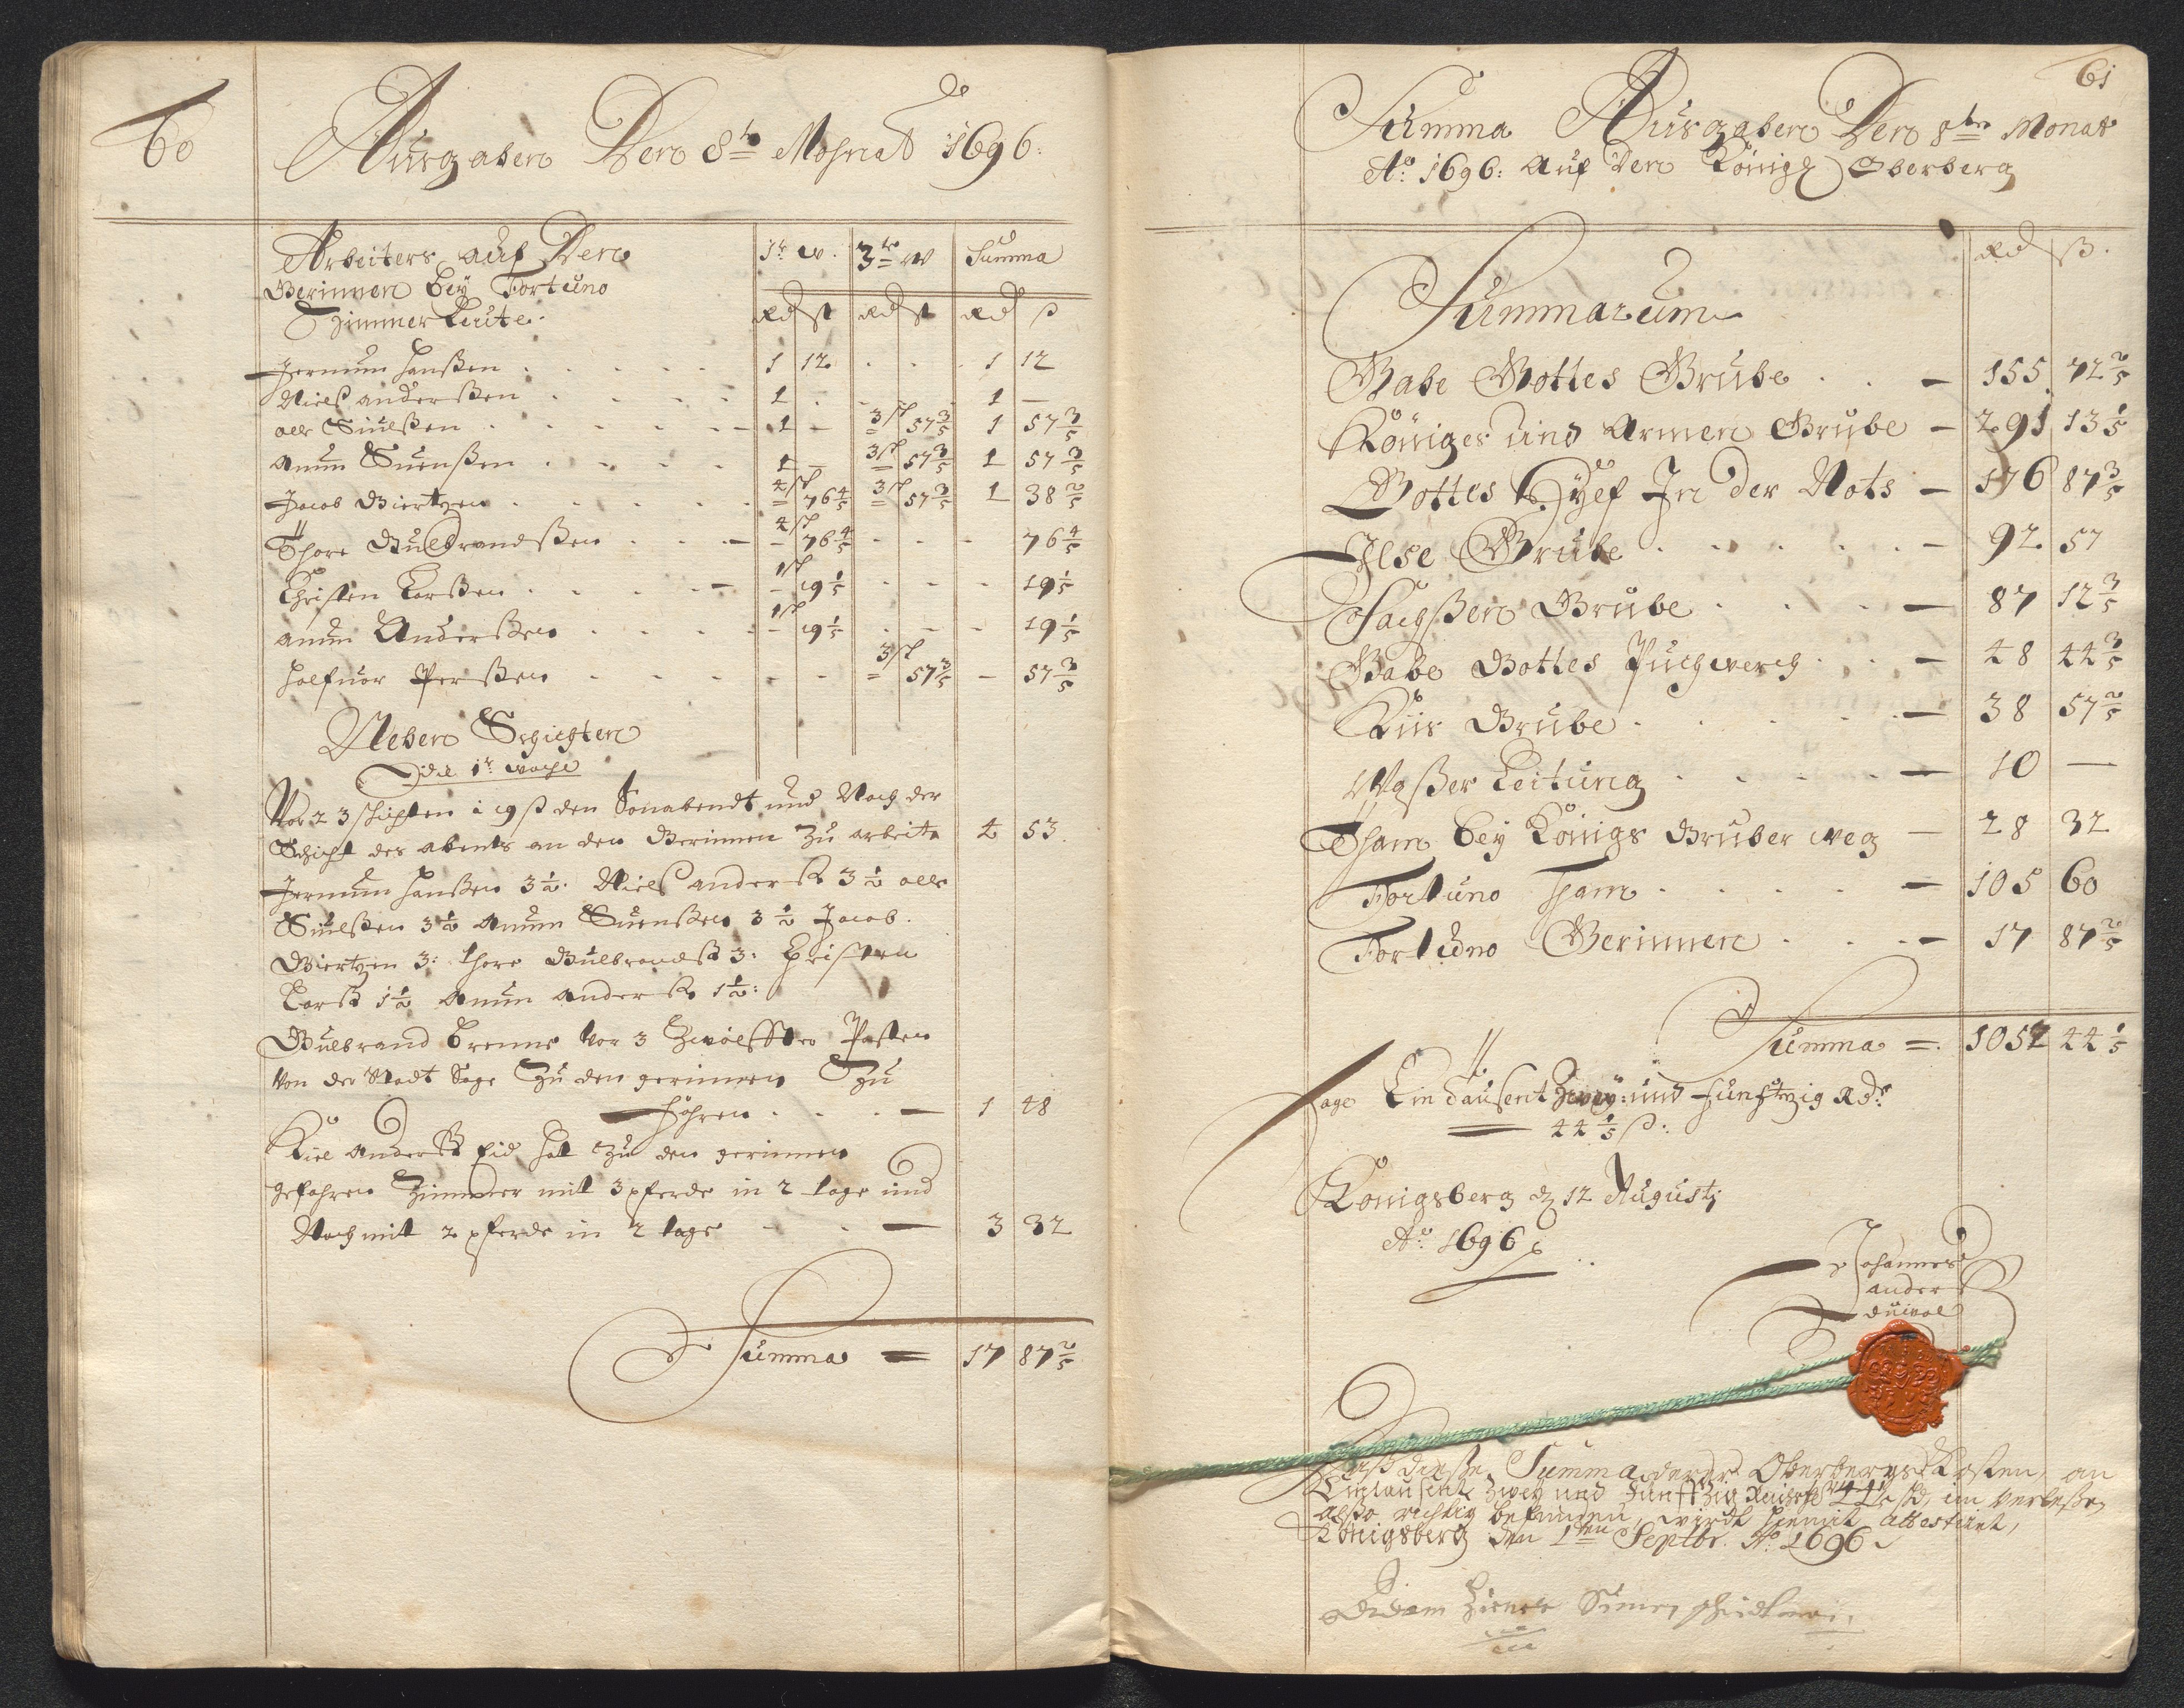 60
Ausgaben Dero 8t. Mohnat 1696:
Arbeiters auf Dero
Gerinnen bey Fortuno
Zimmer Leute.
1t. w. 3te w Summa
Rd ß Rd ß Rd ß
Jermum Hanßen . . . . 1 12 . . 1 12
Niels anderßen . . . . 1 - 1 —
olle Siulßen . . . . 1 – 3 sch 57 3/5 1 57 3/5
Amun Suenßen . . . . 1 – 3 sch 57 3/5 1 57 3/5
Jacob Giertzen . . . . 4 sch 76 4/5 3 sch 57 3/5 1 38 2/5
Thore Gulbrandßen . . . 4 sch 76 4/5 - - - 76 4/5
Christen Larßen . . . . 1 sch 19 1/5 - - - 19 1/5
amun Anderßen . . . . 1 sch 19 1/5 - - - 19 1/5
Halfuor Perßen . . . . - - 3 sch 57 3/5 – 57 3/5
Neben Schichten
Die 1t. woche
Vor 23 schichten à 19 ß den Sonabendt und Nach der
Schicht des abents an den Gerinnen zu arbeite 4 53
Jermum Hanßen 3 1/2. Niels anderß 3 1/2 olle
Siulßen 3 1/2 Amun Suenßen 3 1/2 Jacob
Giertzen 3: Thore Gulbrandß 3: Christen
Larß 1 1/2 Amun anderß 1 1/2:
Gulbrand vor 3 Zwölffter
Von der Stadt Sage Zu den gerinnen Zu
führen . . . — 1 48
anderß hat Zu den gerinnen
gefahren Zimmer mit 3 pferde in 2 tage und
Noch mit 2 pferde in 2 tage - - — 3 32
Summa = 17 87 2/5
61
Summa Ausgaben Dero 8ten Monat
Ao: 1696: Auf Dero Königl Oberberg
Rd ß.
Summarum
Gabe Gottes Grube . . – 155 72 2/5
Königes und Armen Grube – 291 13 1/5
Gottes Hülf In der Noht – 176 87 3/5
Ilse Grube . . . . . – 92 57
Sachßen Grube . . . . — 87 12 3/5
Gabe Gottes Puchwerch . . – 48 44 3/5
Kiis Grube . . . . . — 38 57 2/5
Waßer Leitung . . . . — 10 —
Tham bey Königs Gruber weg — 28 32
Fortuno Tham . . . . . — 105 60
Fortuno Gerinnen . . . – 17 87 2/5
Summa =. 1052 44 1/5
Sage Ein dausent Zwey: und funftzig Rd:
44 1/5 ß:
Königsberg d 12 Augusti
Ao. 1696
Johannes
ander
Daß dieße Summa derer Oberbergs Kosten, an
Eintausent Zwey und Funffzig Reichsth 44 1/5 ß, im verleßen
alßo richtig befunden, wirdt hiemit attestiret,
Königsberg den 1ten Septbr. Ao 1696